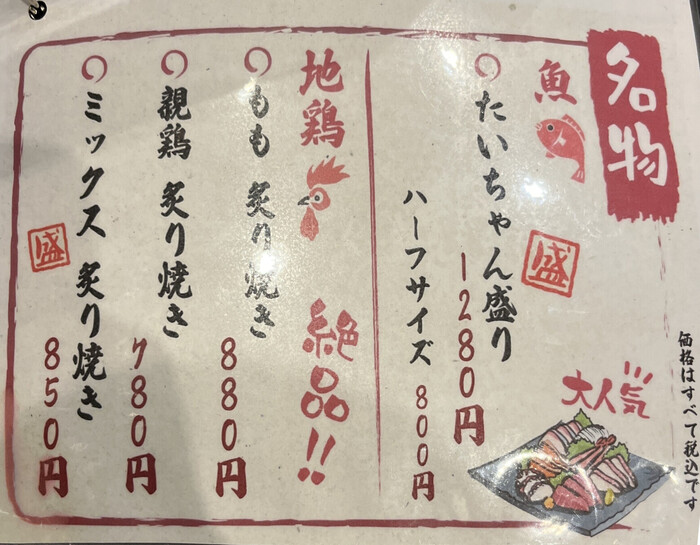 名物
魚
たいちゃん盛り
1280円
盛
ハーフサイズ 800円
大人気
地鶏
絶品!!
もも 炙り焼き
880円
親鶏 炙り焼き
780円
ミックス 炙り焼き
盛
850円
価格はすべて税込です